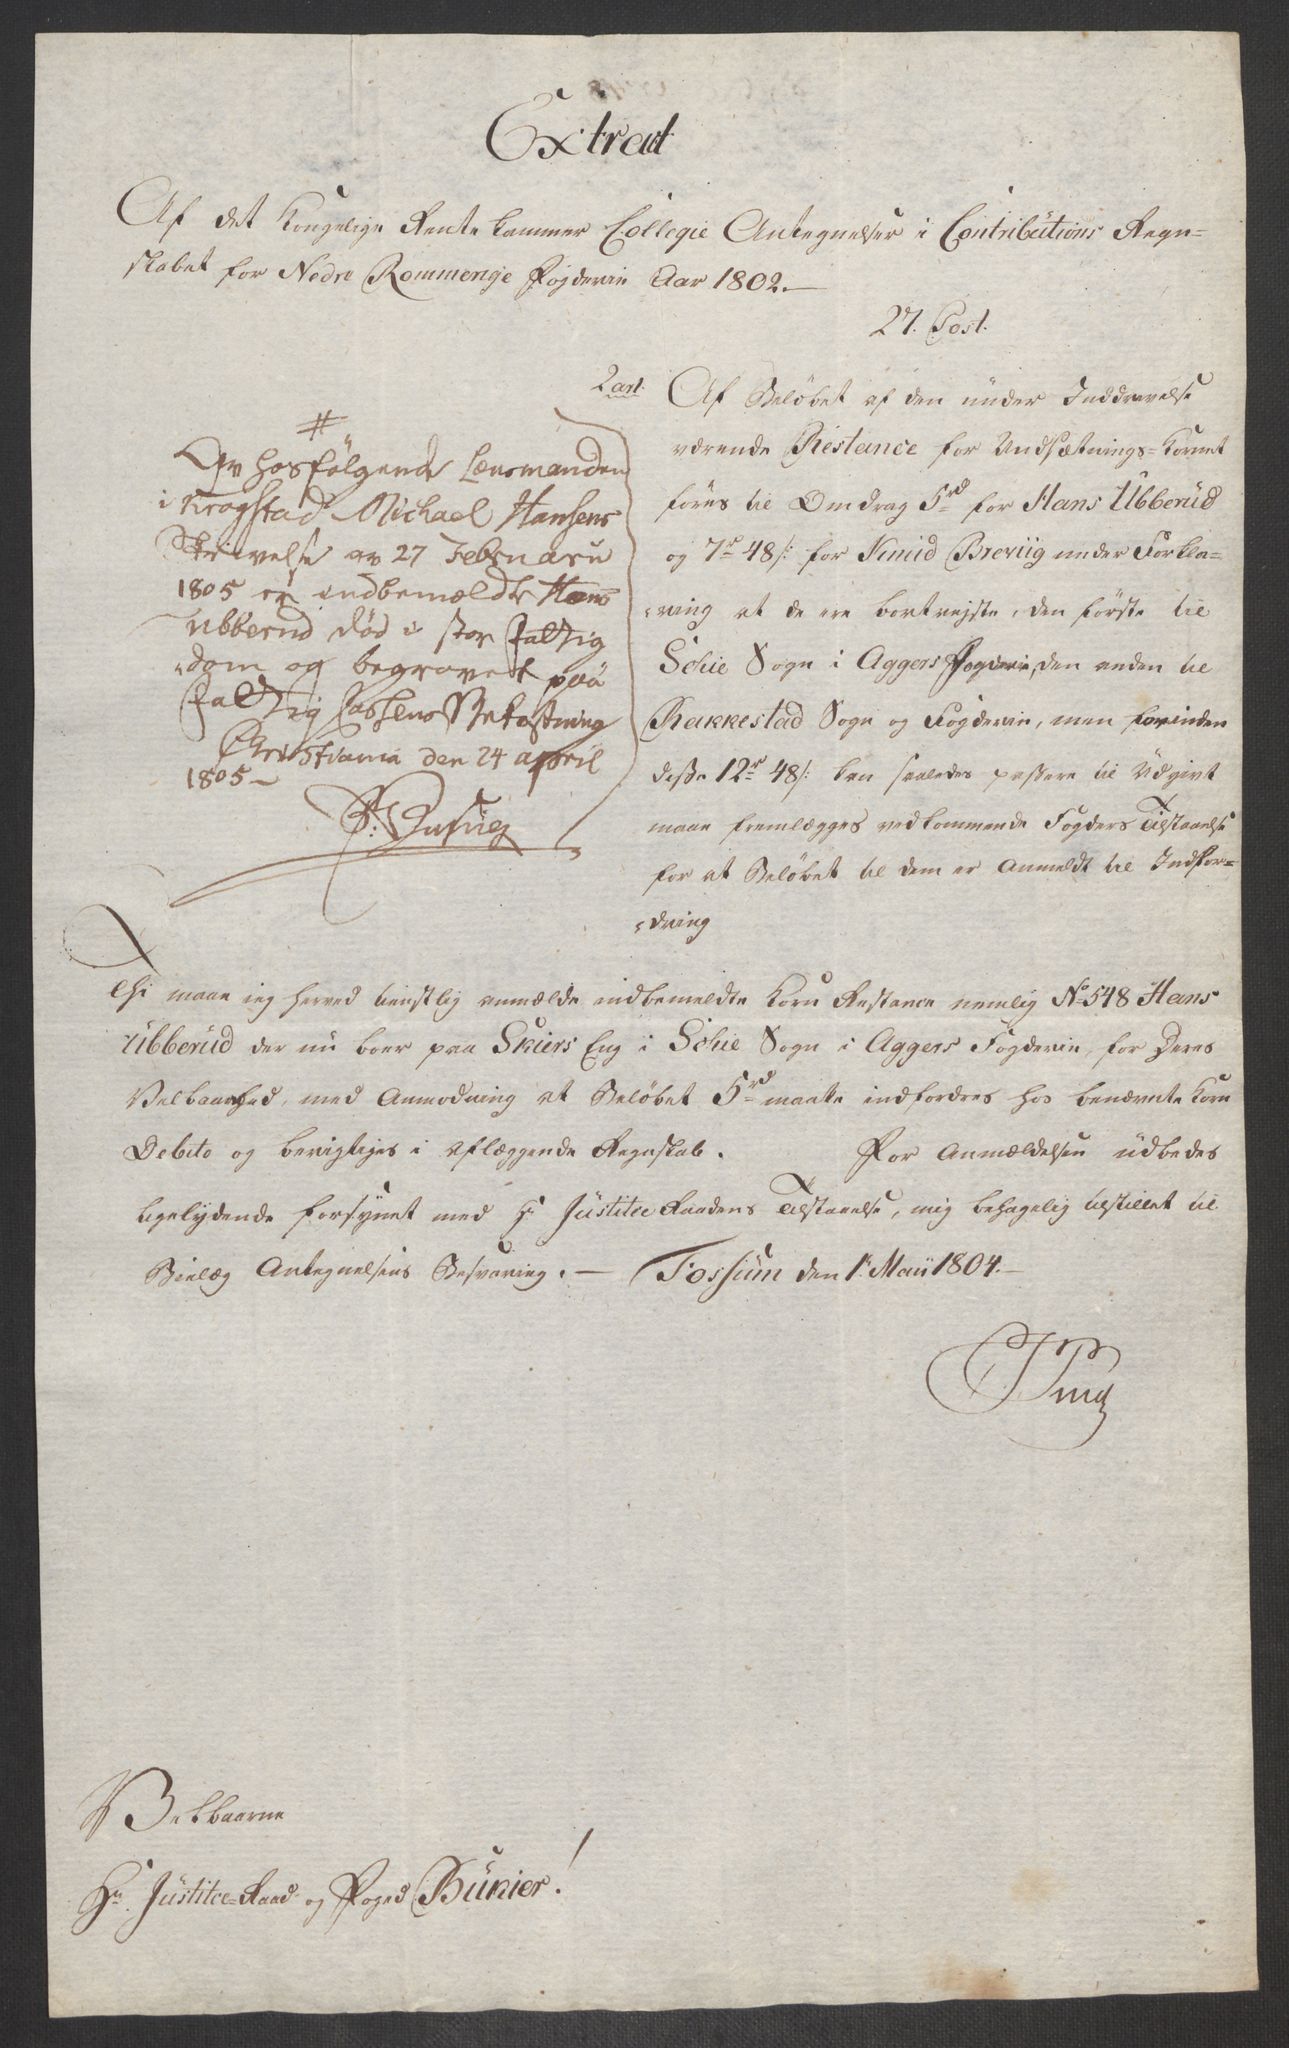 Extract
Af det Kongelige Rente Kammer Collegie Antegnelser i Contributions Regn=
skabet for Nedre Rommerige Fogderie Aar 1802.—
27. Post.
2 art. Af Beløbet af den under Inddrivelse
værende Restance for Undsætnings=Kornet
føres til Omdrag 5 rd for Hans Ubberud
og 7 r 48 s: for Knud Breviig under Forkla=
ring at de ere bortreiste, den første til
Schie Sogn i Aggers Fogderie, den anden til
Rakkestad Sogn og Fogderie, men forinden
disse 12 r 48 s: kan saaledes passere til Udgivt
maae fremlægges vedkommende Fogders Tilstaaelse
for at Beløbet til dem er Anmeldt til Indfor=
dring
#
hosfølgende Lænsmanden
i Kragstad Michael Hansens
Skrivelse av 27 Februarii
1805 er indbemældte Hans
Ubberud død i stor Fattig
dom og begravet paa
Fattig Cassens Bekostning
Christiania den 24 April
1805—
Thi maae ieg herved tienstlig anmælde indbemeldte Korn Restance nemlig No 548 Hans
Ubberud der nu boer paa Skiers Eng i Schie Sogn i Aggers Fogderie, for Deres
Velbaarhed, med Anmodning at Beløbet 5 rd maatte indfordres hos benævnte Korn
Debito og berigtiges i aflæggende Regnskab. For Anmældelsen udbedes
ligelydende forsynet med Hr Justitce Raadens Tilstaaelse, mig behagelig tilstillet til
Bielæg Antegnelsens Besvaring.— Fossum den 1 Maii 1804.—
Velbaarne
Hr. Justitce=Raad og Foged Bunier!